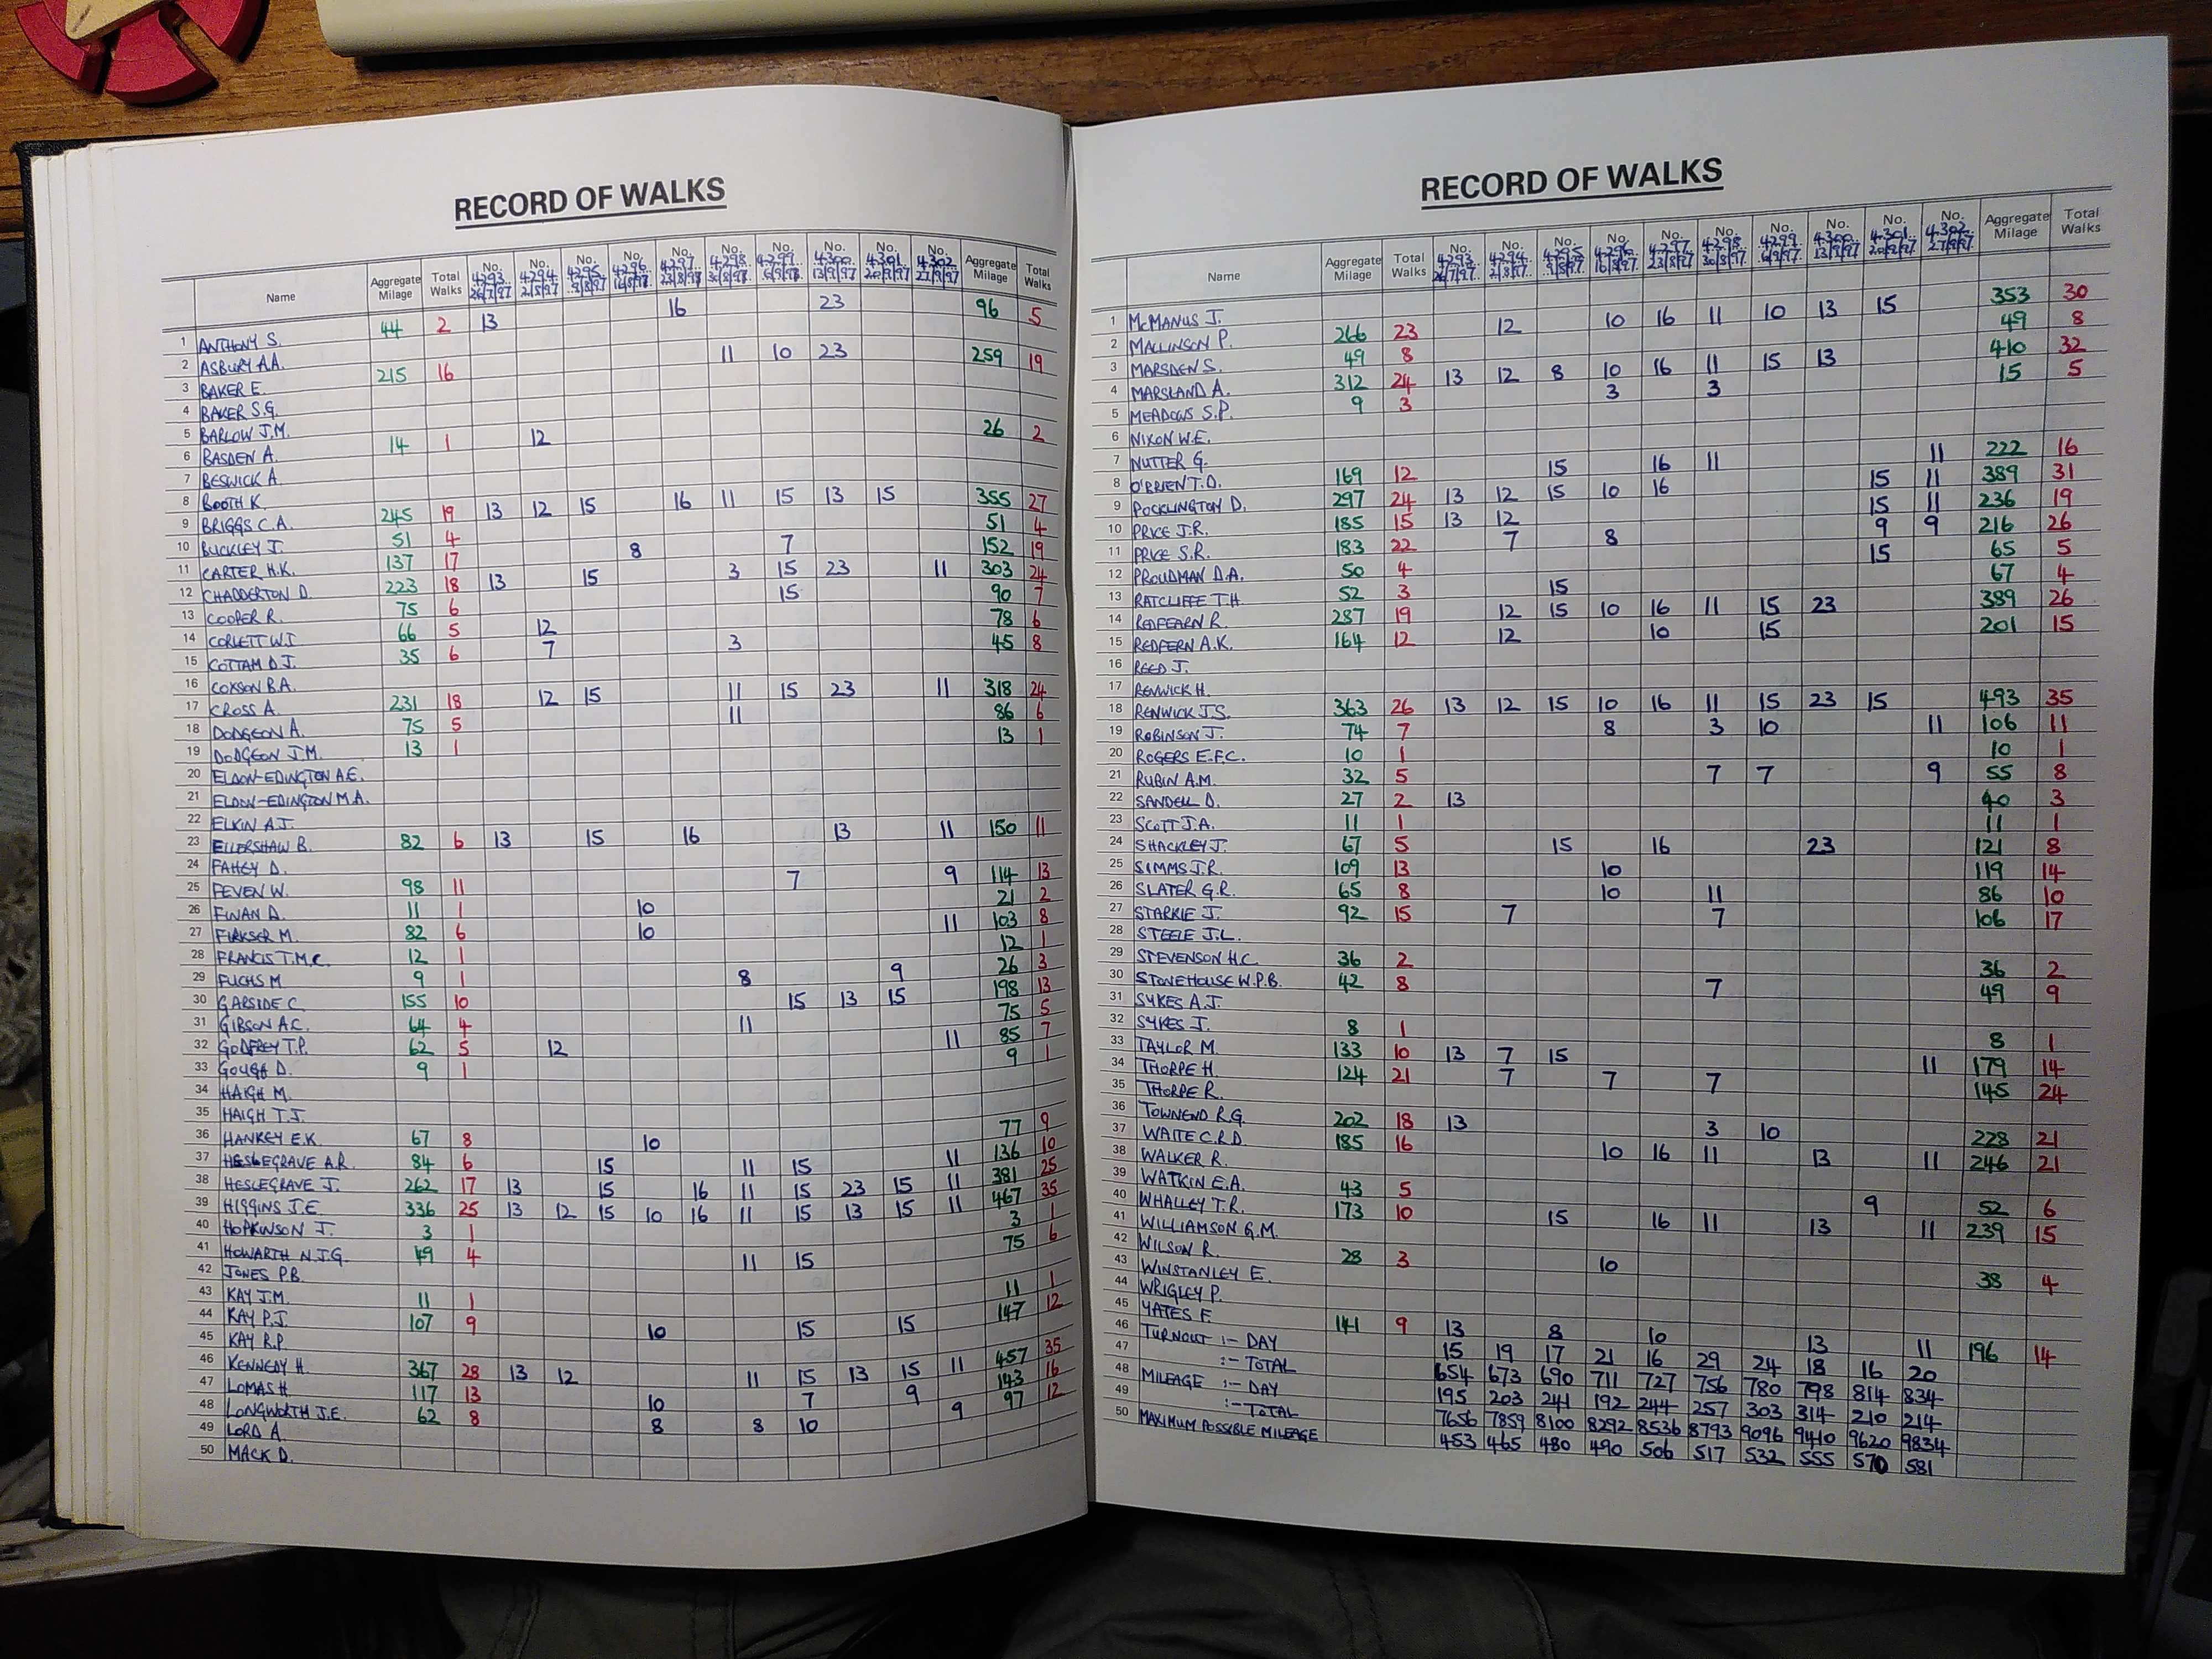 RECORD OF WALKS
Name Aggregate Milage Total Walks No. 4293 26/7/97 No. 4294 2/8/97 No. 4295 9/8/97 No. 4296 16/8/97 No. 4297 23/8/97 No. 4298 30/8/97 No. 4299 6/9/97 No. 4300 13/9/97 No. 4301 20/9/97 No. 4302 27/9/97 Aggregate Milage Total Walks
1 ANTHONY S. 44 2 13 16 23 96 5
2 ASBURY A.A. 
3 BAKER E. 215 16 11 10 23 259 19
4 BAKER S.G.
5 BARLOW J.M.
6 BASDEN A. 14 1 12 26 2
7 BESWICK A.
8 BOOTH K.
9 BRIGGS C.A. 245 19 13 12 15 16 11 15 13 15 355 27
10 BUCKLEY J. 51 4 51 4
11 CARTER H.K. 137 17 8 7 152 19
12 CHADDERTON D. 223 18 13 15 3 15 23 11 303 24
13 COOPER R. 75 6 15 90 7
14 CORLETT W.J. 66 5 12 78 6
15 COTTAM D.J. 35 6 7 3 45 8
16 COXSON B.A.
17 CROSS A. 231 18 12 15 11 15 23 11 318 24
18 DODGEON A. 75 5 11 86 6
19 DODGEON J.M. 13 1 13 1
20 ELDON-EDINGTON A.E.
21 ELDON-EDINGTON M.A.
22 ELKIN A.J.
23 ELLERSHAW B. 82 6 13 15 16 13 11 150 11
24 FAHEY D.
25 FEVEN W. 98 11 7 9 114 13
26 FWAN D. 11 1 10 21 2
27 FIRKSER M. 82 6 10 11 103 8
28 FRANCIS T.M.C. 12 1 12 1
29 FUCHS M 9 1 8 9 26 3
30 GARSIDE C. 155 10 15 13 15 198 13
31 GIBSON A.C. 64 4 11 75 5
32 GODFREY T.P. 62 5 12 11 85 7
33 GOUGH D. 9 1 9 1
34 HAIGH M.
35 HAIGH T.J.
36 HANKEY E.K. 67 8 10 77 9
37 HESLEGRAVE A.R. 84 6 15 11 15 11 136 10
38 HESLEGRAVE J. 262 17 13 15 16 11 15 23 15 11 381 25
39 HIGGINS J.E. 336 25 13 12 15 10 16 11 15 13 15 11 467 35
40 HOPKINSON J. 3 1 3 1
41 HOWARTH N.J.G. 49 4 11 15 75 6
42 JONES P.B.
43 KAY J.M. 11 1 11 1
44 KAY P.J. 107 9 10 15 15 147 12
45 KAY R.P.
46 KENNEDY H. 367 28 13 12 11 15 13 15 11 457 35
47 LOMAS H 117 13 10 7 9 143 16
48 LONGWORTH J.E. 62 8 8 8 10 9 97 12
49 LORD A.
50 MACK D.
RECORD OF WALKS
Name Aggregate Milage Total Walks No. 4293 26/7/97 No. 4294 2/8/97 No. 4295 9/8/97 No. 4296 16/8/97 No. 4297 23/8/97 No. 4298 30/8/97 No. 4299 6/9/97 No. 4300 13/9/97 No. 4301 20/9/97 No. 4302 27/9/97 Aggregate Milage Total Walks
1 McMANUS J. 266 23 12 10 16 11 10 13 15 353 30
2 MALLINSON P. 49 8 49 8
3 MARSDEN S. 312 24 13 12 8 10 16 11 15 13 410 32
4 MARSLAND A. 9 3 3 3 15 5
5 MEADOWS S.P.
6 NIXON W.E.
7 NUTTER G. 169 12 15 16 11 11 222 16
8 O'BRIEN T.D. 297 24 13 12 15 10 16 15 11 389 31
9 POCKLINGTON D. 185 15 13 12 15 11 236 19
10 PRICE J.R. 183 22 7 8 9 9 216 26
11 PRICE S.R. 50 4 15 65 5
12 PROUDMAN D.A. 52 3 15 67 4
13 RATCLIFFE T.H. 287 19 12 15 10 16 11 15 23 389 26
14 REDFEARN R. 164 12 12 10 15 201 15
15 REDFERN A.K.
16 REED J.
17 RENWICK H.
18 RENWICK J.S. 363 26 13 12 15 10 16 11 15 23 15 493 35
19 ROBINSON J. 74 7 8 3 10 11 106 11
20 ROGERS E.F.C. 10 1 10 1
21 RUBIN A.M. 32 5 7 7 9 55 8
22 SANDELL D. 27 2 13 40 3
23 SCOTT J.A. 11 1 11 1
24 SHACKLEY J. 67 5 15 16 23 121 8
25 SIMMS J.R. 109 13 10 119 14
26 SLATER G.R. 65 8 10 11 86 10
27 STARKIE J. 92 15 7 7 106 17
28 STEELE J.L.
29 STEVENSON H.C. 36 2 36 2
30 STONEHOUSE W.P.B. 42 8 7 49 9
31 SYKES A.J.
32 SYKES J. 8 1 8 1
33 TAYLOR M. 133 10 13 7 15 11 179 14
34 THORPE H. 124 21 7 7 7 145 24
35 THORPE R.
36 TOWNEND R.G. 202 18 13 3 10 228 21
37 WAITE C.R.D. 185 16 10 16 11 13 11 246 21
38 WALKER R.
39 WATKIN E.A. 43 5 9 52 6
40 WHALLEY T.R. 173 10 15 16 11 13 11 239 15
41 WILLIAMSON G.M.
42 WILSON R. 28 3 10 38 4
43 WINSTANLEY E.
44 WRIGLEY P.
45 YATES F. 141 9 13 8 10 13 11 196 14
46 TURNOUT :- DAY 15 19 17 21 16 29 24 18 16 20
47 :- TOTAL 654 673 690 711 727 756 780 798 814 834
48 MILEAGE :- DAY 195 203 241 192 244 257 303 314 210 214
49 :- TOTAL 7656 7859 8100 8292 8536 8793 9096 9410 9620 9834
50 MAXIMUM POSSIBLE MILEAGE 453 465 480 490 506 517 532 555 570 581